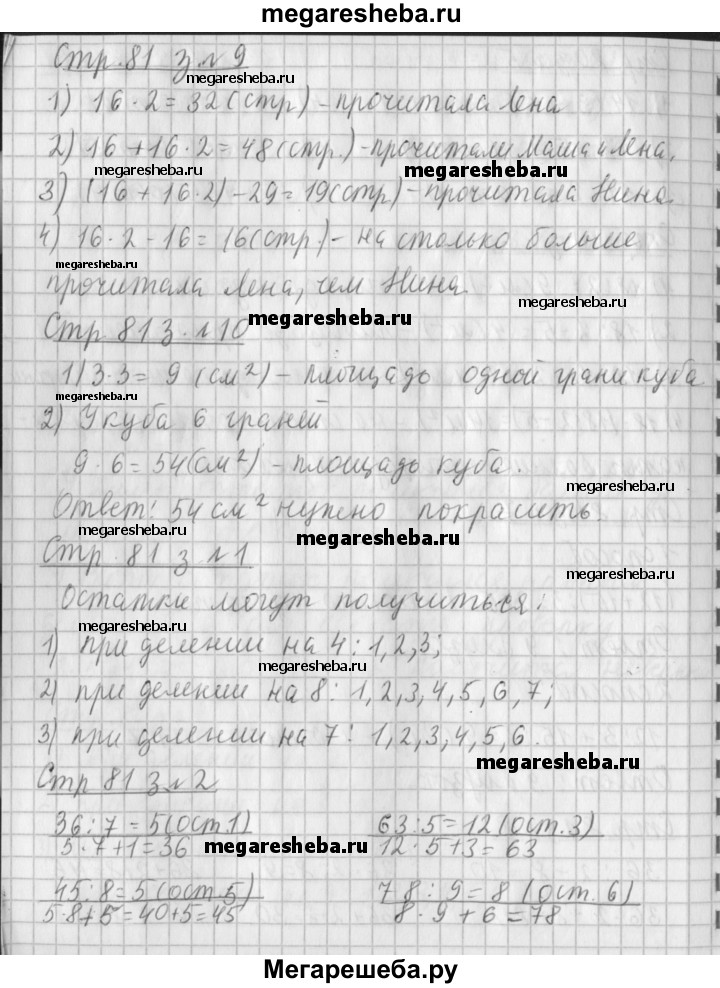 megaresheba.ru
Стр. 81 з. №9
megaresheba.ru
1) 16·2=32(стр) - прочитала Лена
megaresheba.ru
2) 16+16·2=48(стр.)-прочитали Маша и Лена.
megaresheba.ru
megaresheba.ru
3) (16+16·2)-29=19(стр)- прочитала Нина.
megaresheba.ru
4) 16·2-16=16(стр)- на столько больше
megaresheba.ru
прочитала Лена, чем Нина.
megaresheba.ru
Стр 81 з. №10
megaresheba.ru
1) 3·3= 9 (см²) - площадь одной грани куба
megaresheba.ru
2) У куба 6 граней
9·6=54(см²) - площадь куба.
megaresheba.ru
Ответ: 54 см² нужно покрасить.
megaresheba.ru
megaresheba.ru
Стр. 81 з №1
megaresheba.ru
Остатки могут получиться:
megaresheba.ru
1) при делении на 4: 1,2,3;
megaresheba.ru
2) при делении на 8: 1,2,3,4,5,6,7;
3) при делении на 7: 1,2,3,4,5,6.
megaresheba.ru
Стр 81 з №2
36:7=5(ост.1) 63:5=12(ост.3)
5·7+1=36 12·5+3=63
megaresheba.ru
45:8=5(ост.5) 78:9=8(ост.6)
5·8+5=40+5=45 8·9+6=78
Мегарешеба.ру